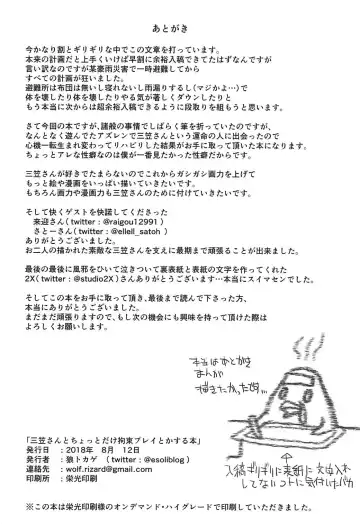 あとがき
今かなり割とギリギリな中でこの文章を打っています。
本来の計画だと上手くいけば早割に余裕入稿できてたはずなんですが
言い訳なのですが某豪雨災害で一時避難してから
すべての計画が狂いました。
避難所は布団は無いし寝れないし雨漏りするし(マジかよ…)で
体を壊したり体を壊したりやる気が著しくダウンしたりと
もう本当に次からは超余裕入稿できるように段取りを組もうと思います。
さて今回の本ですが、諸般の事情でしばらく筆を折っていたのですが、
なんとなく遊んでたアズレンで三笠さんという運命の人に出会ったので
心機一転生まれ変わってリハビリした結果がお手に取って頂いた本になります。
ちょっとアレな性癖なのは僕が一番見たかった性癖だからです。
三笠さんが好きでたまらないのでこれからガシガシ画力を上げて
もっと絵や漫画をいっぱい描いていきたいです。
もちろん画力や漫画力も三笠さんのために付けていきたいです。
そして快くゲストを快諾してくださった
来迎さん(twitter：@raigou12991)
さとーさん(twitter：@ellell_satoh )
ありがとうございました。
お二人の描かれた素敵な三笠さんを支えに最期まで頑張ることが出来ました。
最後の最後に風邪をひいて泣きついて裏表紙と表紙の文字を作ってくれた
2X(twitter：@studio2X)さんありがとうございます…本当にスイマセンでした。
そしてこの本をお手に取って頂き、最後まで読んで下さった方、
本当にありがとうございました。
まだまだ頑張りますので、もし次の機会にも興味を持って頂けた際は
よろしくお願いします。
本当はあとがき
まんが
描きたかったです…
「三笠さんとちょっとだけ拘束プレイとかする本」
発行日：2018年 8月 12日
発行者：狼トカゲ (twitter：@esoliblog)
連絡先：wolf.rizard@gmail.com
印刷所：栄光印刷
入稿ギリギリに表紙に文字入れ
してないコトに気付いたバカ
※この本は栄光印刷様のオンデマンド・ハイグレードで印刷していただきました。